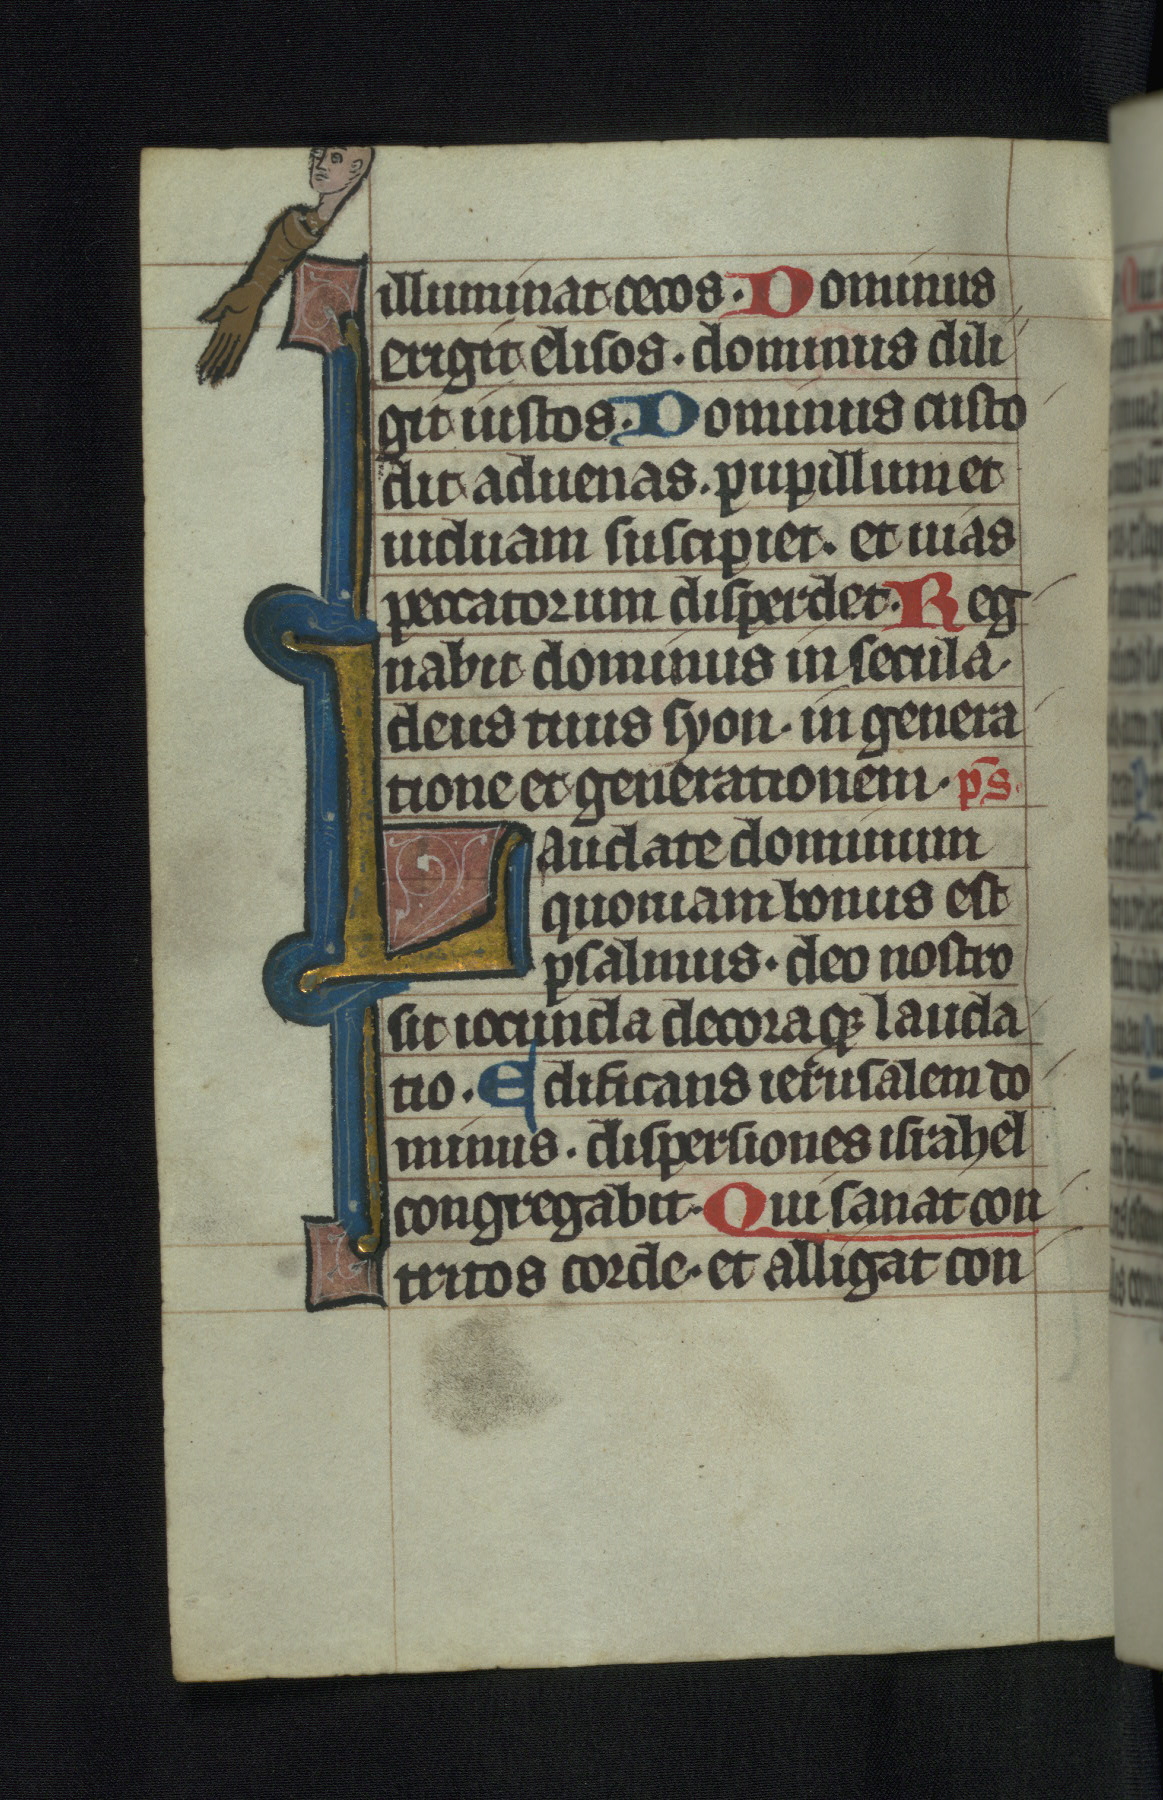 illuminat cecos. Dominus
erigit elisos. dominus dili
git iustos. Dominus custo
dit aduenas. pupillum et
uiduam suscipiet. et uias
peccatorum disperdet. Reg
nabit dominus in secula.
deus tuus syon. in genera
tione et generationem. p̄s.
Laudate dominum
quoniam bonus est
psalmus. deo nostro
sit iocunda decoraq; lauda
tio. Edificans ierusalem do
minus. dispersiones israhel
congregabit. Qui sanat con
tritos corde. et alligat con